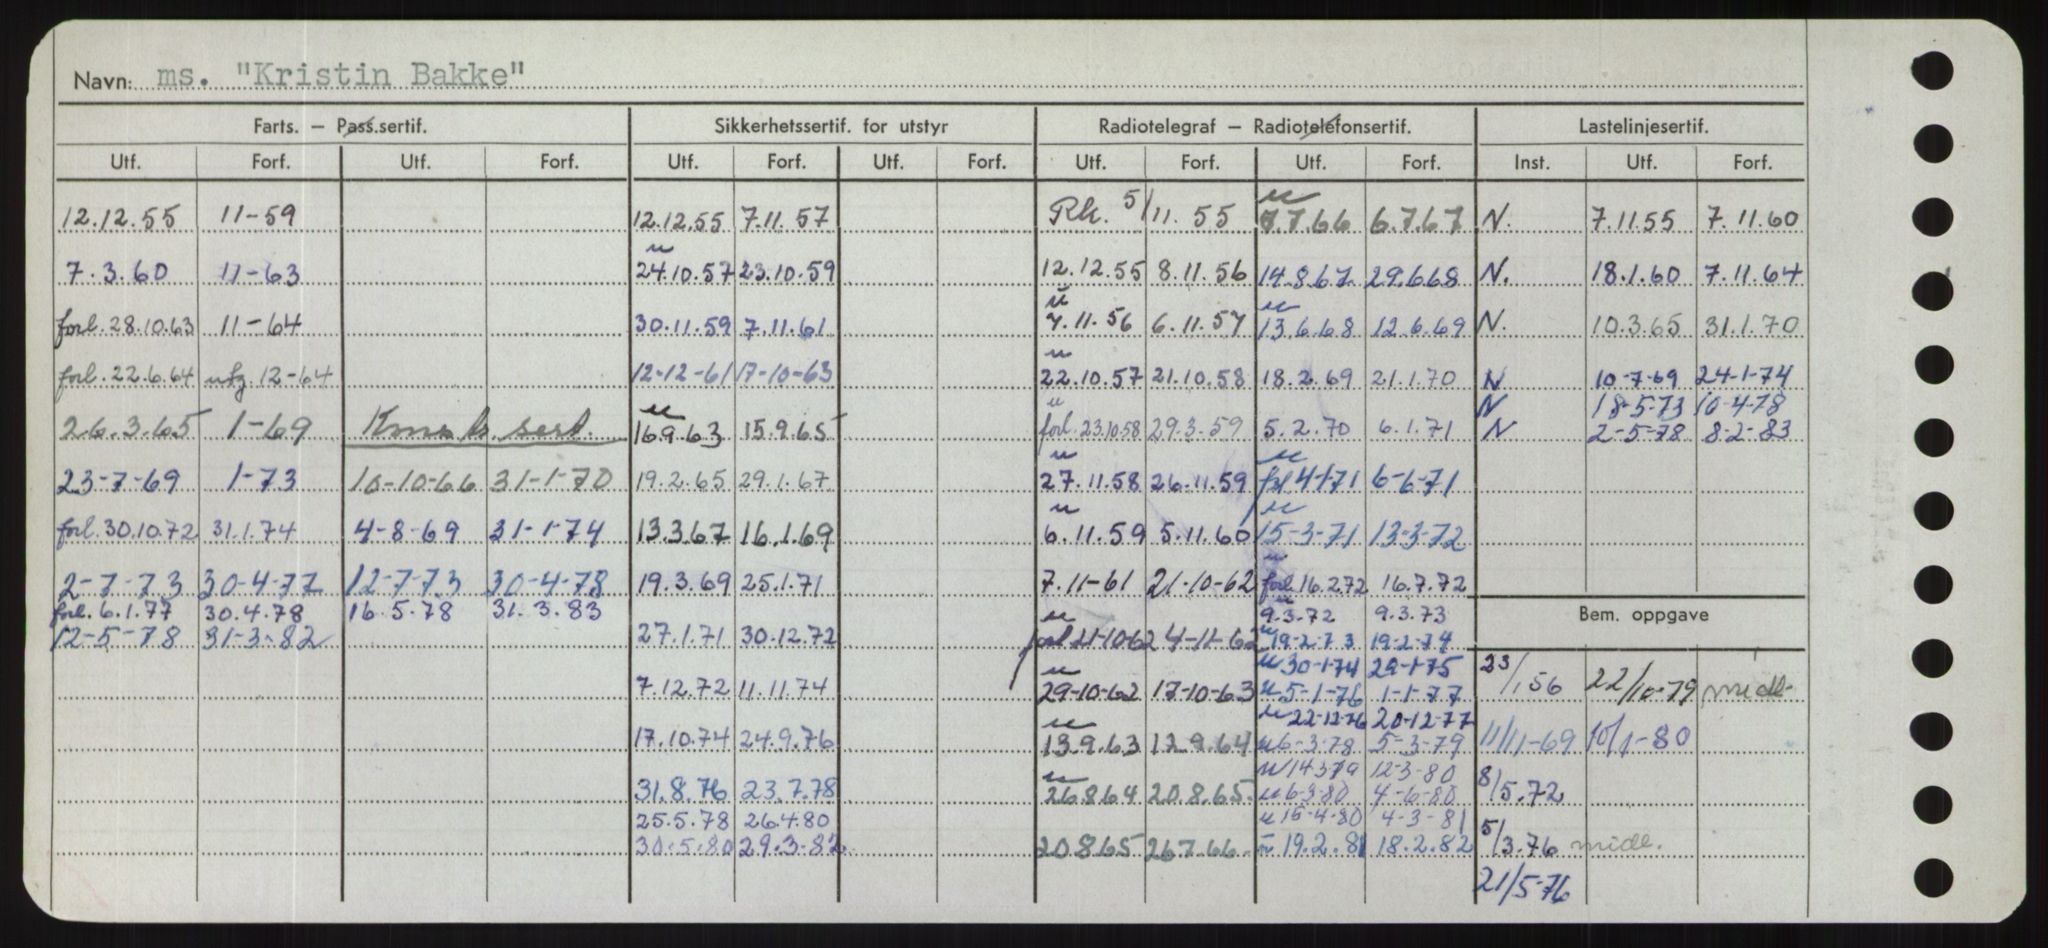 Navn: ms. "Kristin Bakke"
Farts. – Pass.sertif. Sikkerhetssertif. for utstyr Radiotelegraf – Radiotelefonsertif. Lastelinjesertif.
Utf. Forf. Utf. Forf. Utf. Forf. Utf. Forf. Utf. Forf. Utf. Forf. Inst. Utf. Forf.
12.12.55 11-59 12.12.55 7.11.57 Rk. 5/11. 55 u 7.7.66 6.7.67 N. 7.11.55 7.11.60
7.3.60 11-63 u 24.10.57 23.10.59 12.12.55 8.11.56 14.8.67 29.6.68 N. 18.1.60 7.11.64
forl. 28.10.63 11-64 30.11.59 7.11.61 u 7.11.56 6.11.57 u 13.6.68 12.6.69 N. 10.3.65 31.1.70
forl. 22.6.64 utg. 12-64 12-12-61 17-10-63 u 22.10.57 21.10.58 18.2.69 21.1.70 N 10-7-69 24-1-74
N 18-5-73 10-4-78
26.3.65 1-69 sert. u 16.9.63 15.9.65 u forl. 23.10.58 29.3.59 5.2.70 6.1.71 N 2-5-78 8-2-83
23-7-69 1-73 10-10-66 31-1-70 19.2.65 29.1.67 u 27.11.58 26.11.59 u forl 4-1-71 6-6-71
forl. 30.10.72 31.1.74 4-8-69 31-1-74 13.3.67 16.1.69 u 6.11.59 5.11.60 u 15-3-71 13-3-72
2-7-73 30-4-77 12-7-73 30-4-78 19.3.69 25.1.71 7.11-61 21-10-62 u forl. 16.2.72 16.7.72
forl. 6.1.77 30.4.78 16.5.78 31.3.83 u 9.3.72 9.3.73 Bem. oppgave
12-5-78 31-3-82 27.1.71 30.12.72 u forl 21-10-62 4-11-62 u 19-2-73 19-2-74
u 30-1-74 29-1-75
7.12.72 11.11.74 u 29-10-62 17-10-63 u 5-1-76 1-1-77 23/1.56 22/10-79 midl-
u 22-12-76 20-12-77
17.10.74 24.9.76 u 13.9.63 12.9.64 u 6-3-78 5-3-79 11/11-69 10/1-80
u 14.3.79 12-3-80
31.8.76 23.7.78 u 26.8.64 20.8.65. u 6-3-80 4-6-80 8/5.72
25.5.78 26.4.80 u 15-4-80 4-3-81
30.5.80 29.3.82 20.8.65 26.7.66. u 19.2.81 18.2.82 5/3.76 midl.
21/5-76